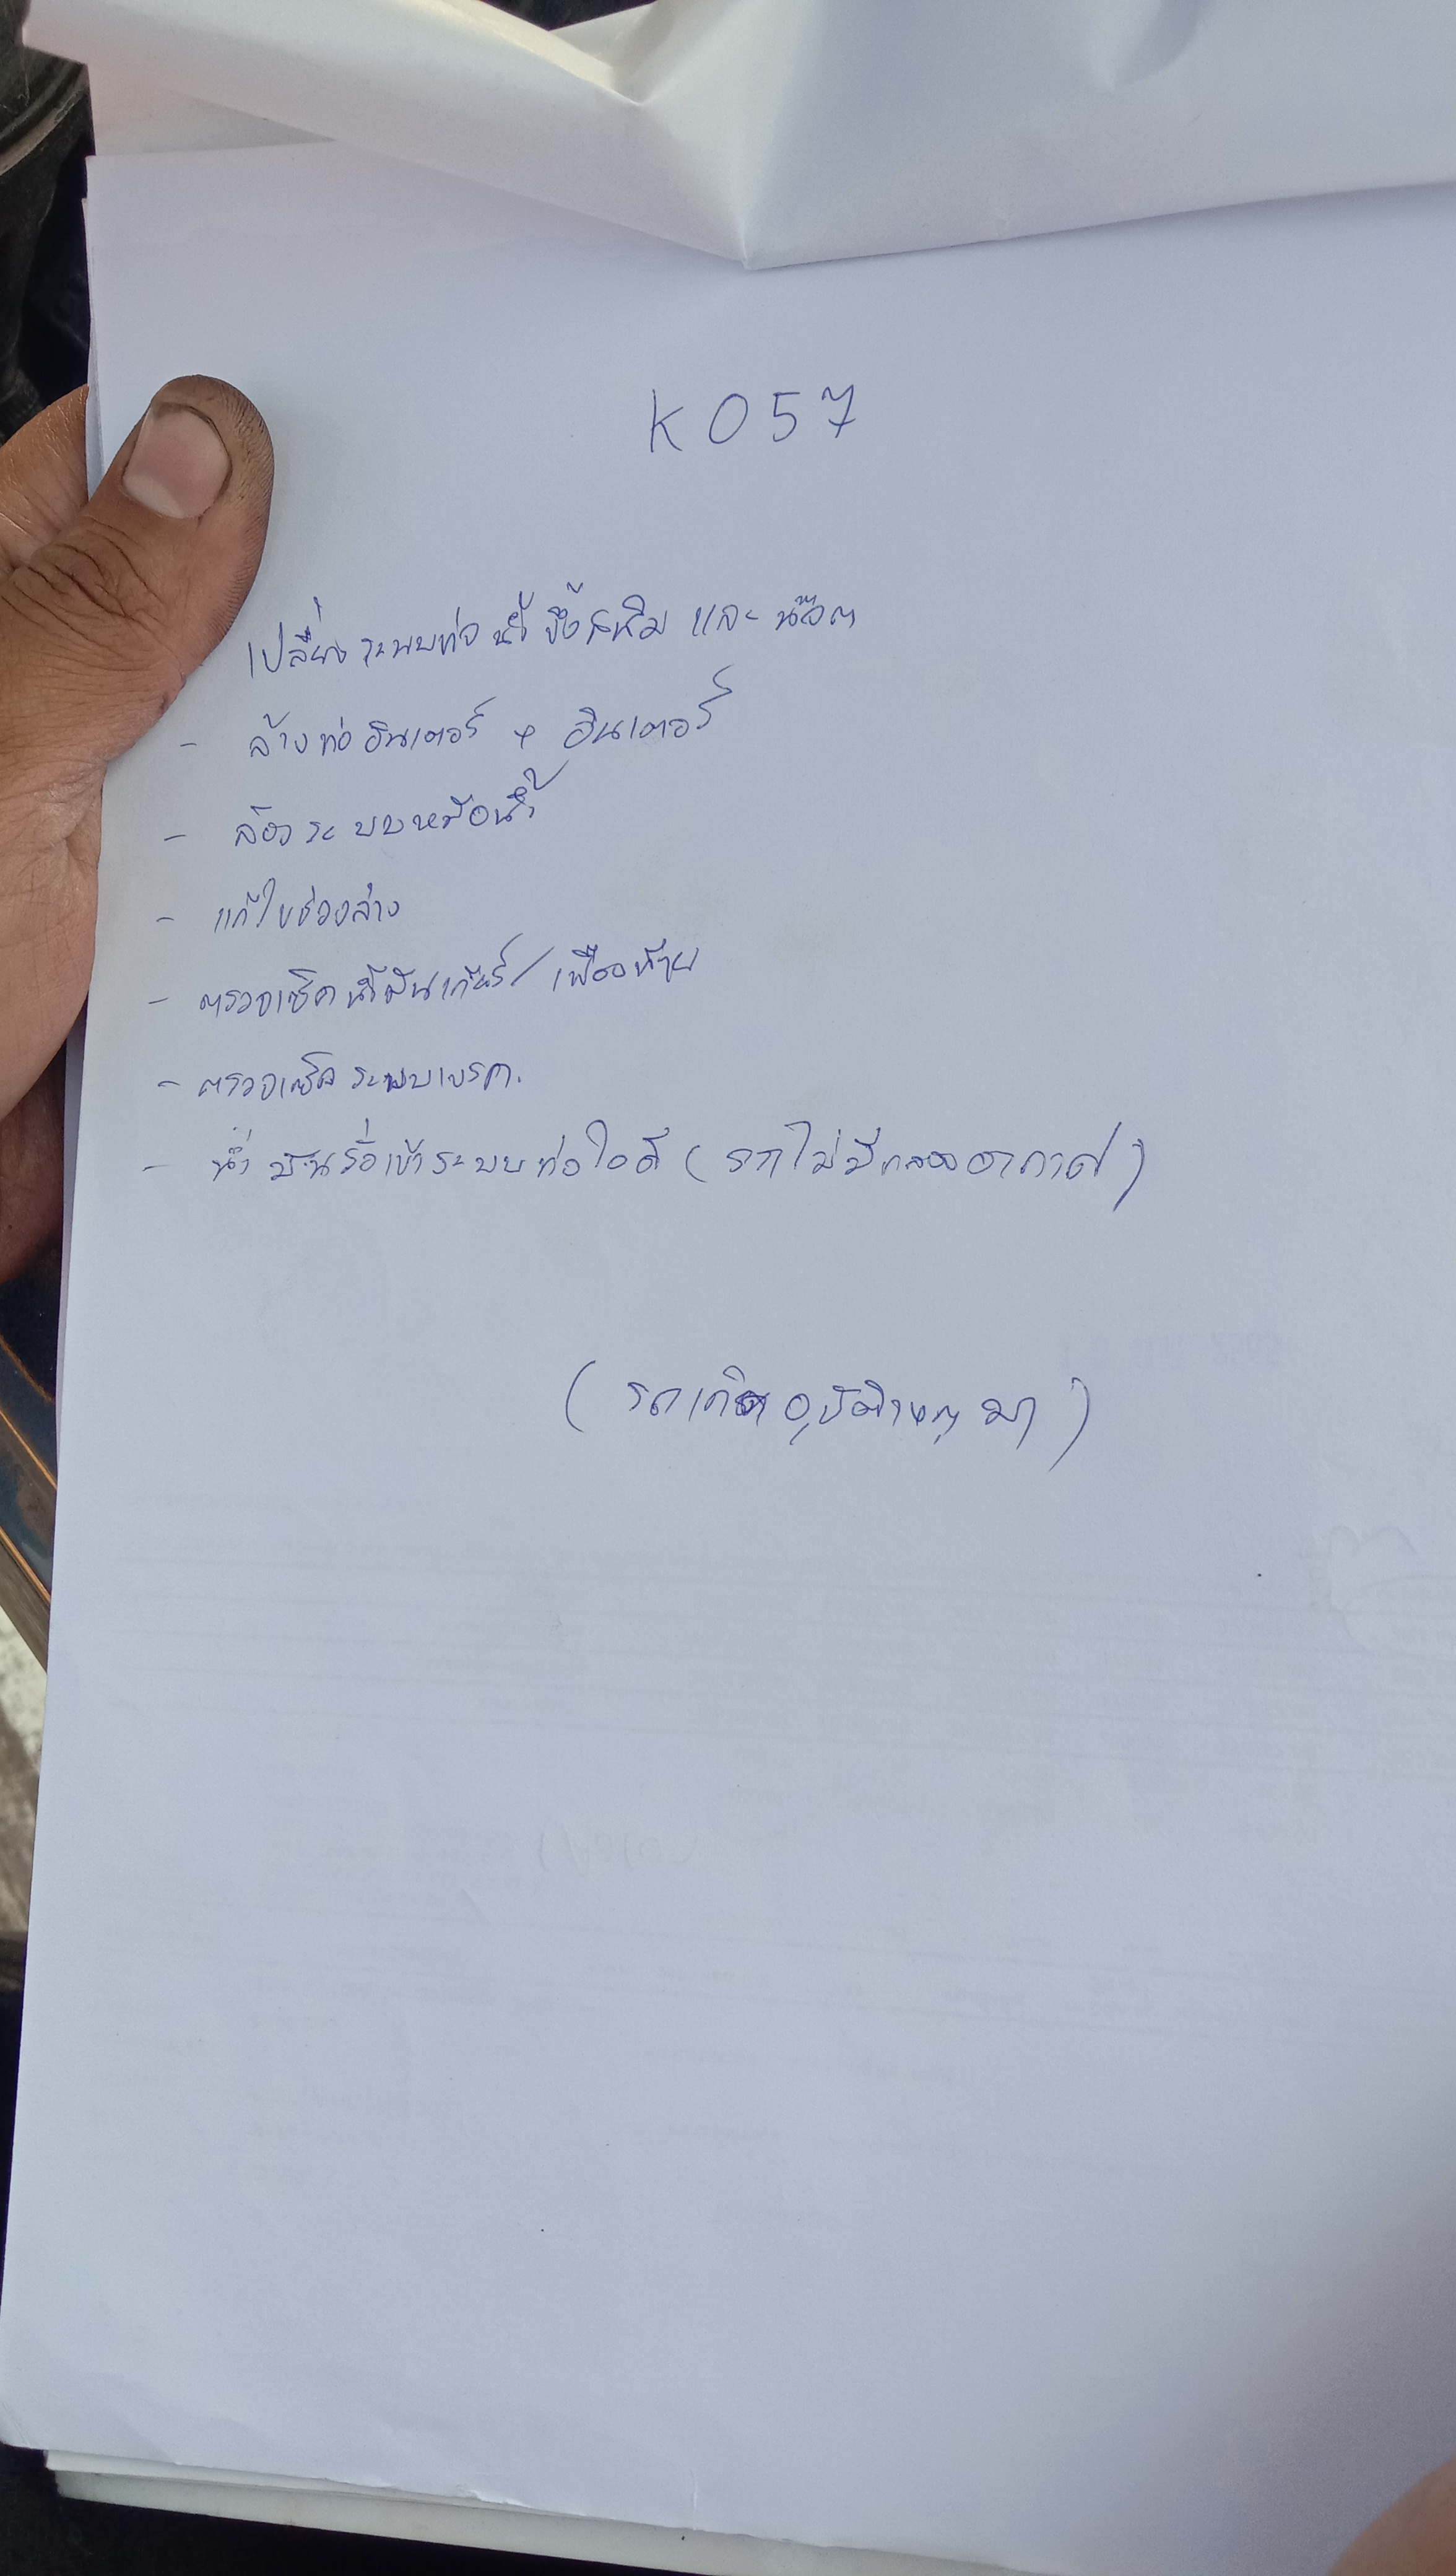 K057
เปลี่ยนระบบท่อน้ำ ขึ้สนิม และ น๊อต
- ล้างท่ออินเตอร์ + อินเตอร์
- ล้างระบบหม้อน้ำ
- แก้ไขช่วงล่าง
- ตรวจเช็คน้ำมันเกียร์/เฟืองท้าย
- ตรวจเช็คระบบเบรค.
- น้ำมันรั่วเข้าระบบท่อไอดี (รถไม่มีกรองอากาศ)
(รถเกิดอุบัติเหตุมา)